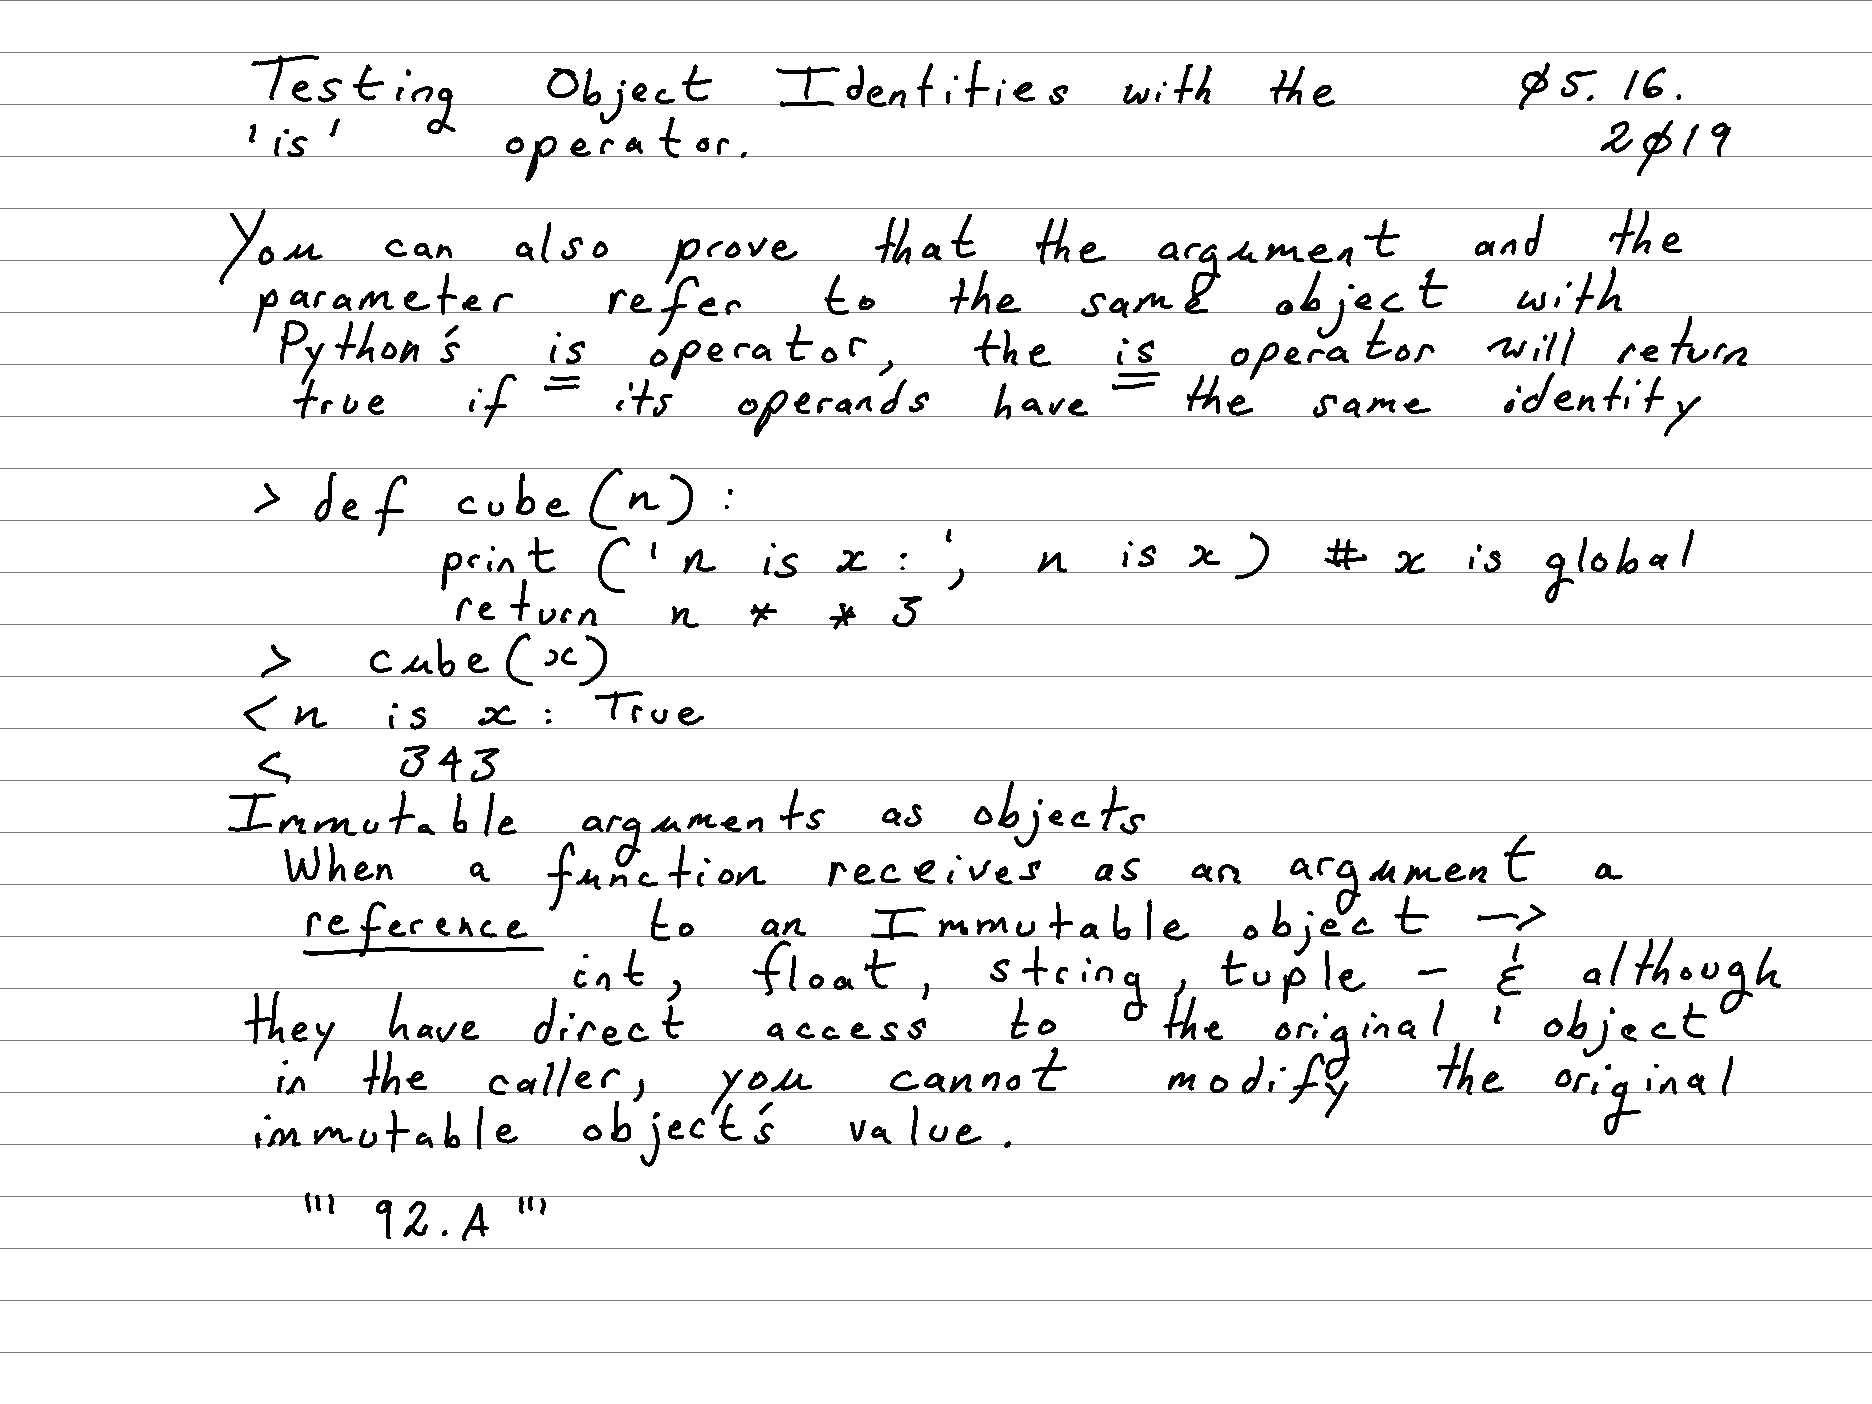 Testing Object Identities with the 05.16.
'is' operator. 2019
You can also prove that the argument and the
parameter refer to the same object with
Python's is operator, the is operator will return
true if its operands have the same identity
> def cube(n):
print ('n is x:', n is x) # x is global
return n * * 3
> cube(x)
< n is x: True
< 343
Immutable arguments as objects
When a function receives as an argument a
reference to an Immutable object ->
int, float, string, tuple - & although
they have direct access to the original ' object
in the caller, you cannot modify the original
immutable object's value.
''' 92.A '''